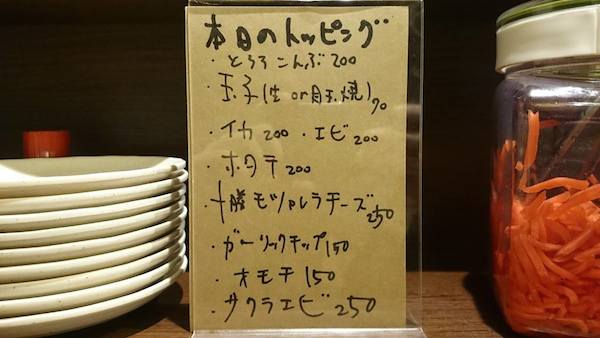 本日のトッピング
・とろろこんぶ200
・玉子(生or目玉焼)90
・イカ200・エビ200
・ホタテ200
・十勝モツァレラチーズ250
・ガーリックチップ150
・オモチ150
・サクラエビ250